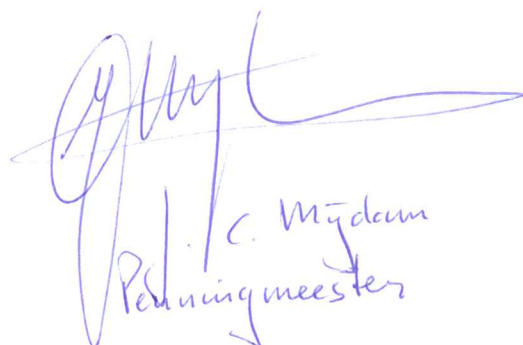 C. Mijdam
Penningmeester